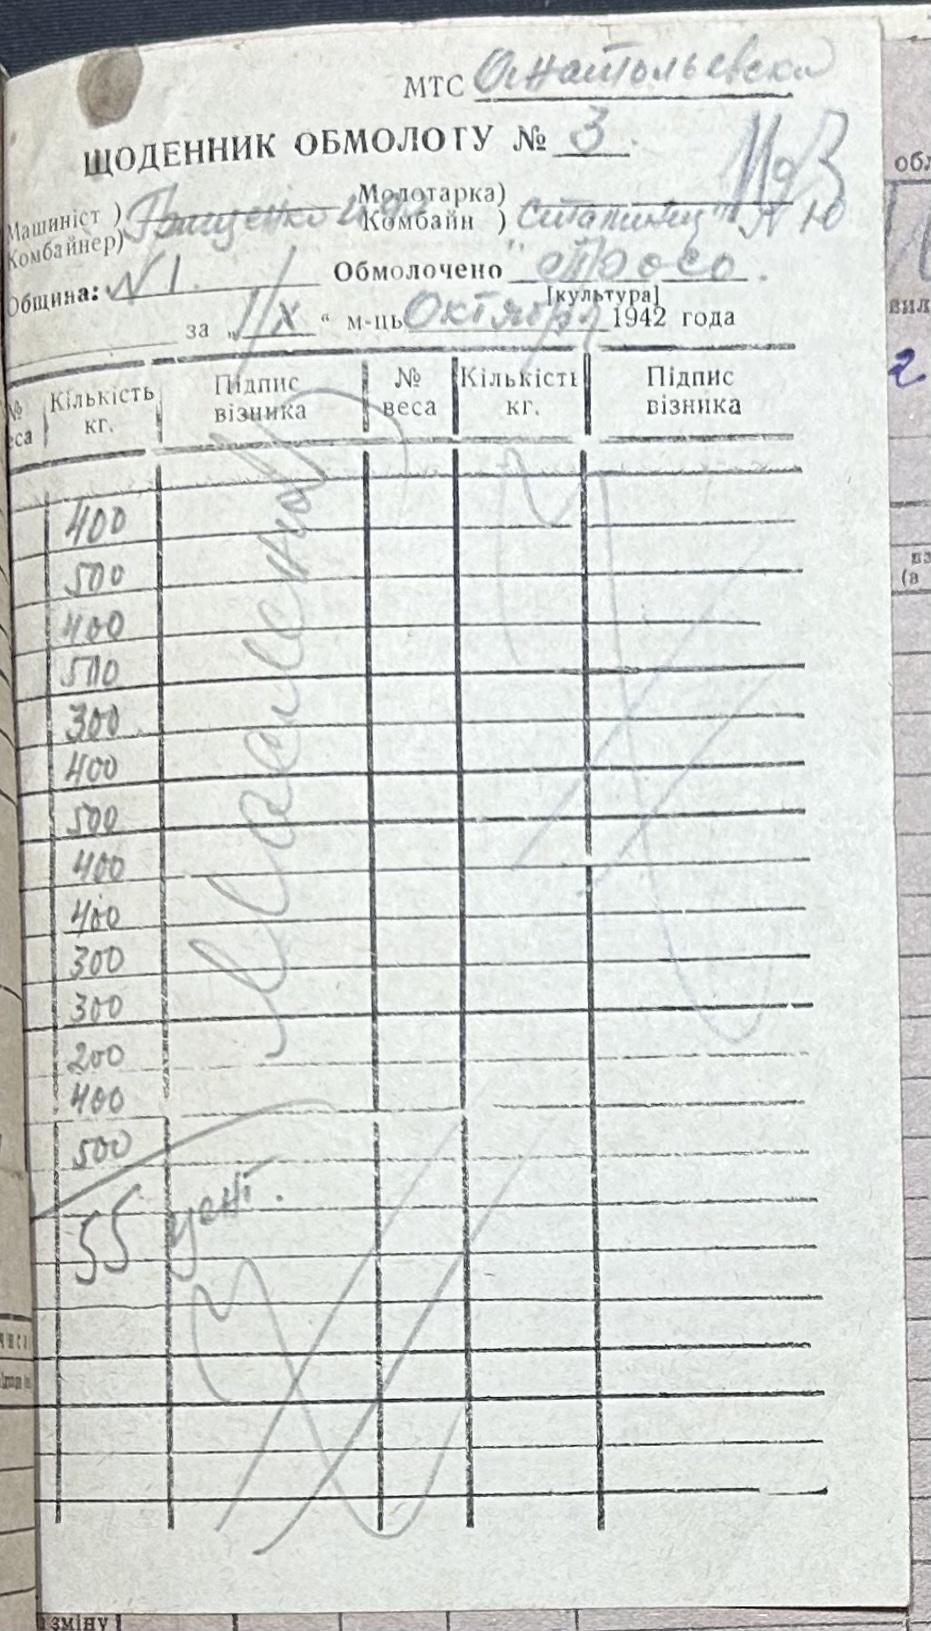 МТС
ЩОДЕННИК ОБМОЛОТУ № 3.
Машиніст ) Молотарка)
Комбайнер) Комбайн ) Сталинец" № 10
Община: № 1. Обмолочено "Просо".
[культура]
за „1/X“ м-ць Октября 1942 года
№ веса Кількість кг. Підпис візника № веса Кількість кг. Підпис візника
400
500
400
500
300
400
500
400
400
300
300
200
400
500
55 цент.
обл
вил
2
вз
(в
зміну